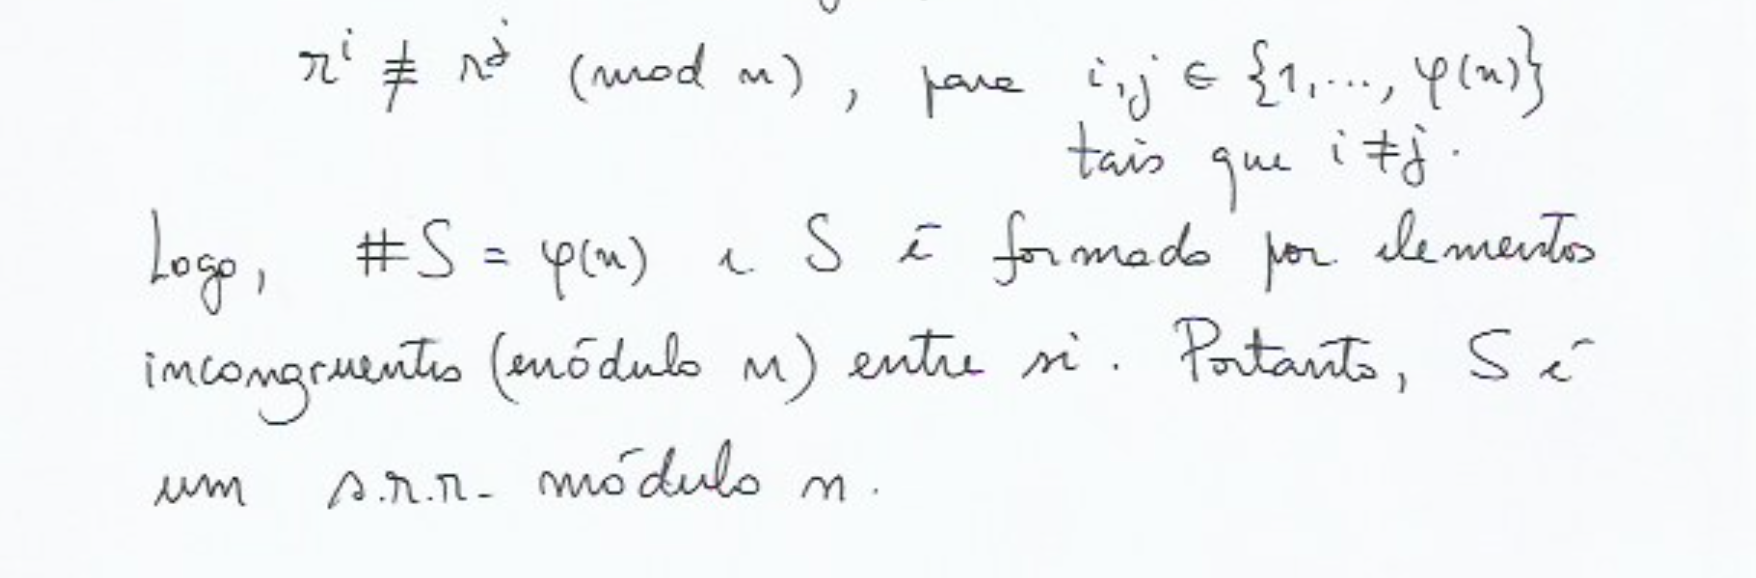 r^i ≢ r^j (mod n), para i,j ∈ {1,..., φ(n)}
tais que i ≠ j.
Logo, #S = φ(n) e S é formado por elementos
incongruentes (módulo n) entre si. Portanto, S é
um s.r.r. módulo n.